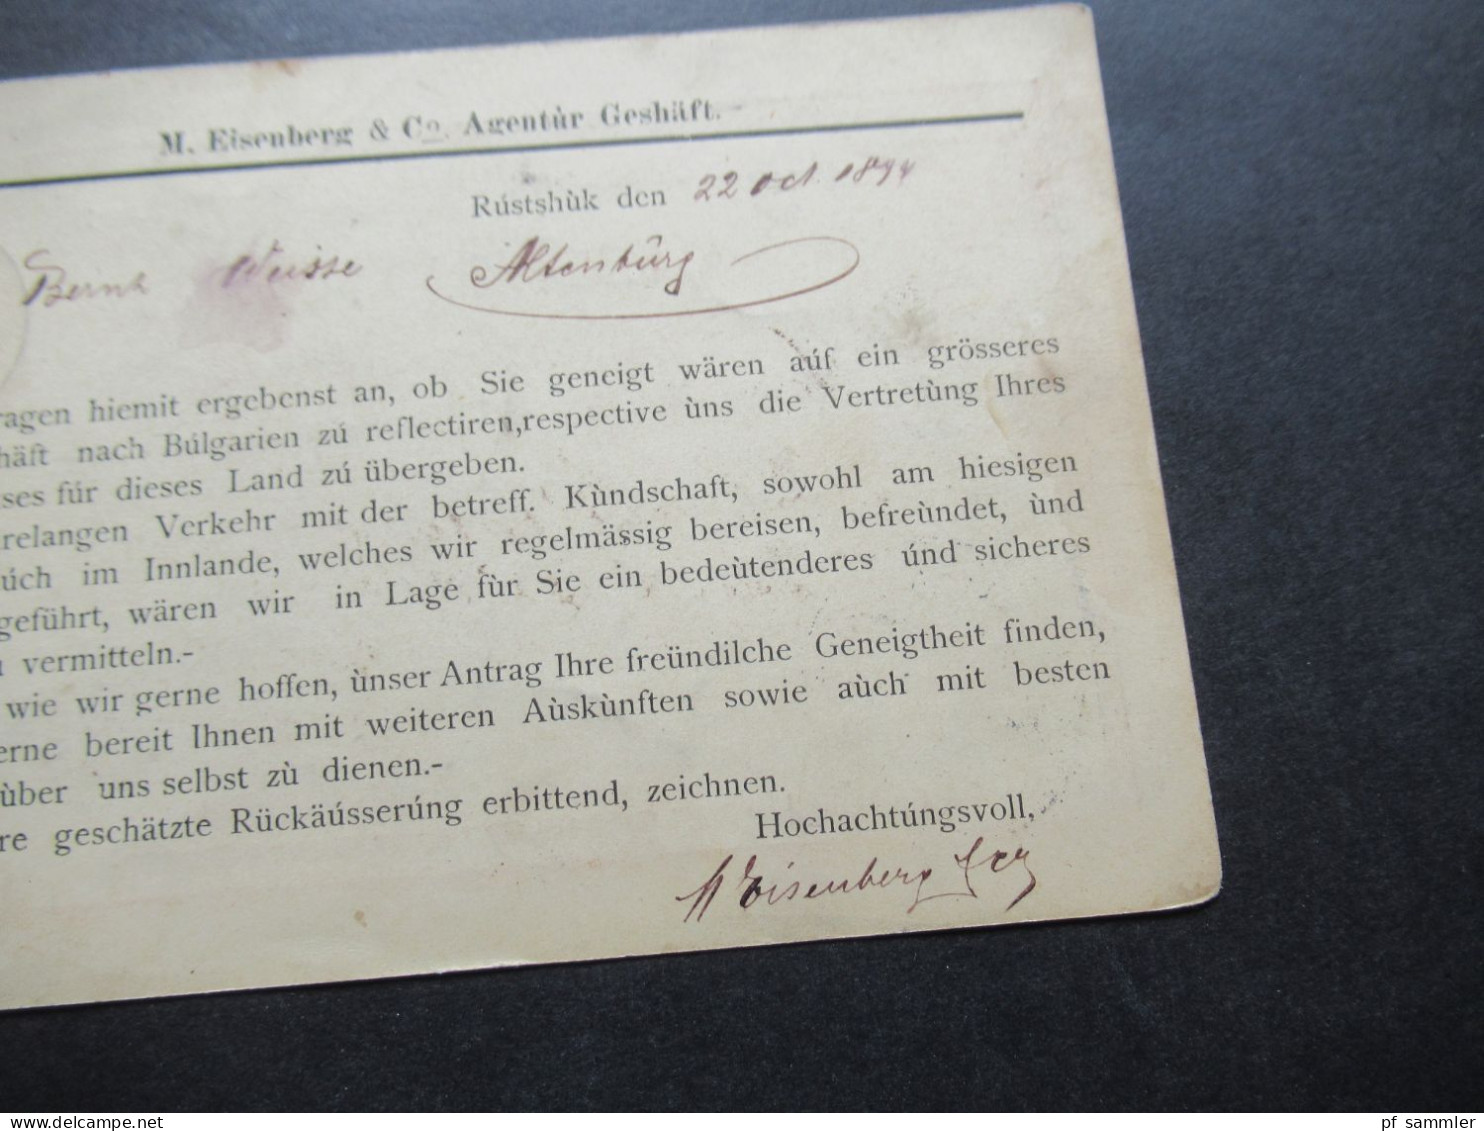 M. Eisenberg & Co. Agentùr Geshäft.-
Rústshùk den 22 Oct. 1894
Bernh Weisse Altenbürg
ragen hiemit ergebenst an, ob Sie geneigt wären aúf ein grösseres
häft nach Búlgarien zú reflectiren,respective ùns die Vertretùng Ihres
ses fúr dieses Land zú übergeben.
relangen Verkehr mit der betreff. Kùndschaft, sowohl am hiesigen
úch im Innlande, welches wir regelmässig bereisen, befreùndet, ùnd
geführt, wären wir in Lage fùr Sie ein bedeùtenderes únd sicheres
vermitteln.-
wie wir gerne hoffen, ùnser Antrag Ihre freündilche Geneigtheit finden,
erne bereit Ihnen mit weiteren Aùskùnften sowie aùch mit besten
ùber uns selbst zù dienen.-
re geschätzte Rückäússerúng erbittend, zeichnen.
Hochachtúngsvoll,
M Eisenberg & Co
pf_sammler